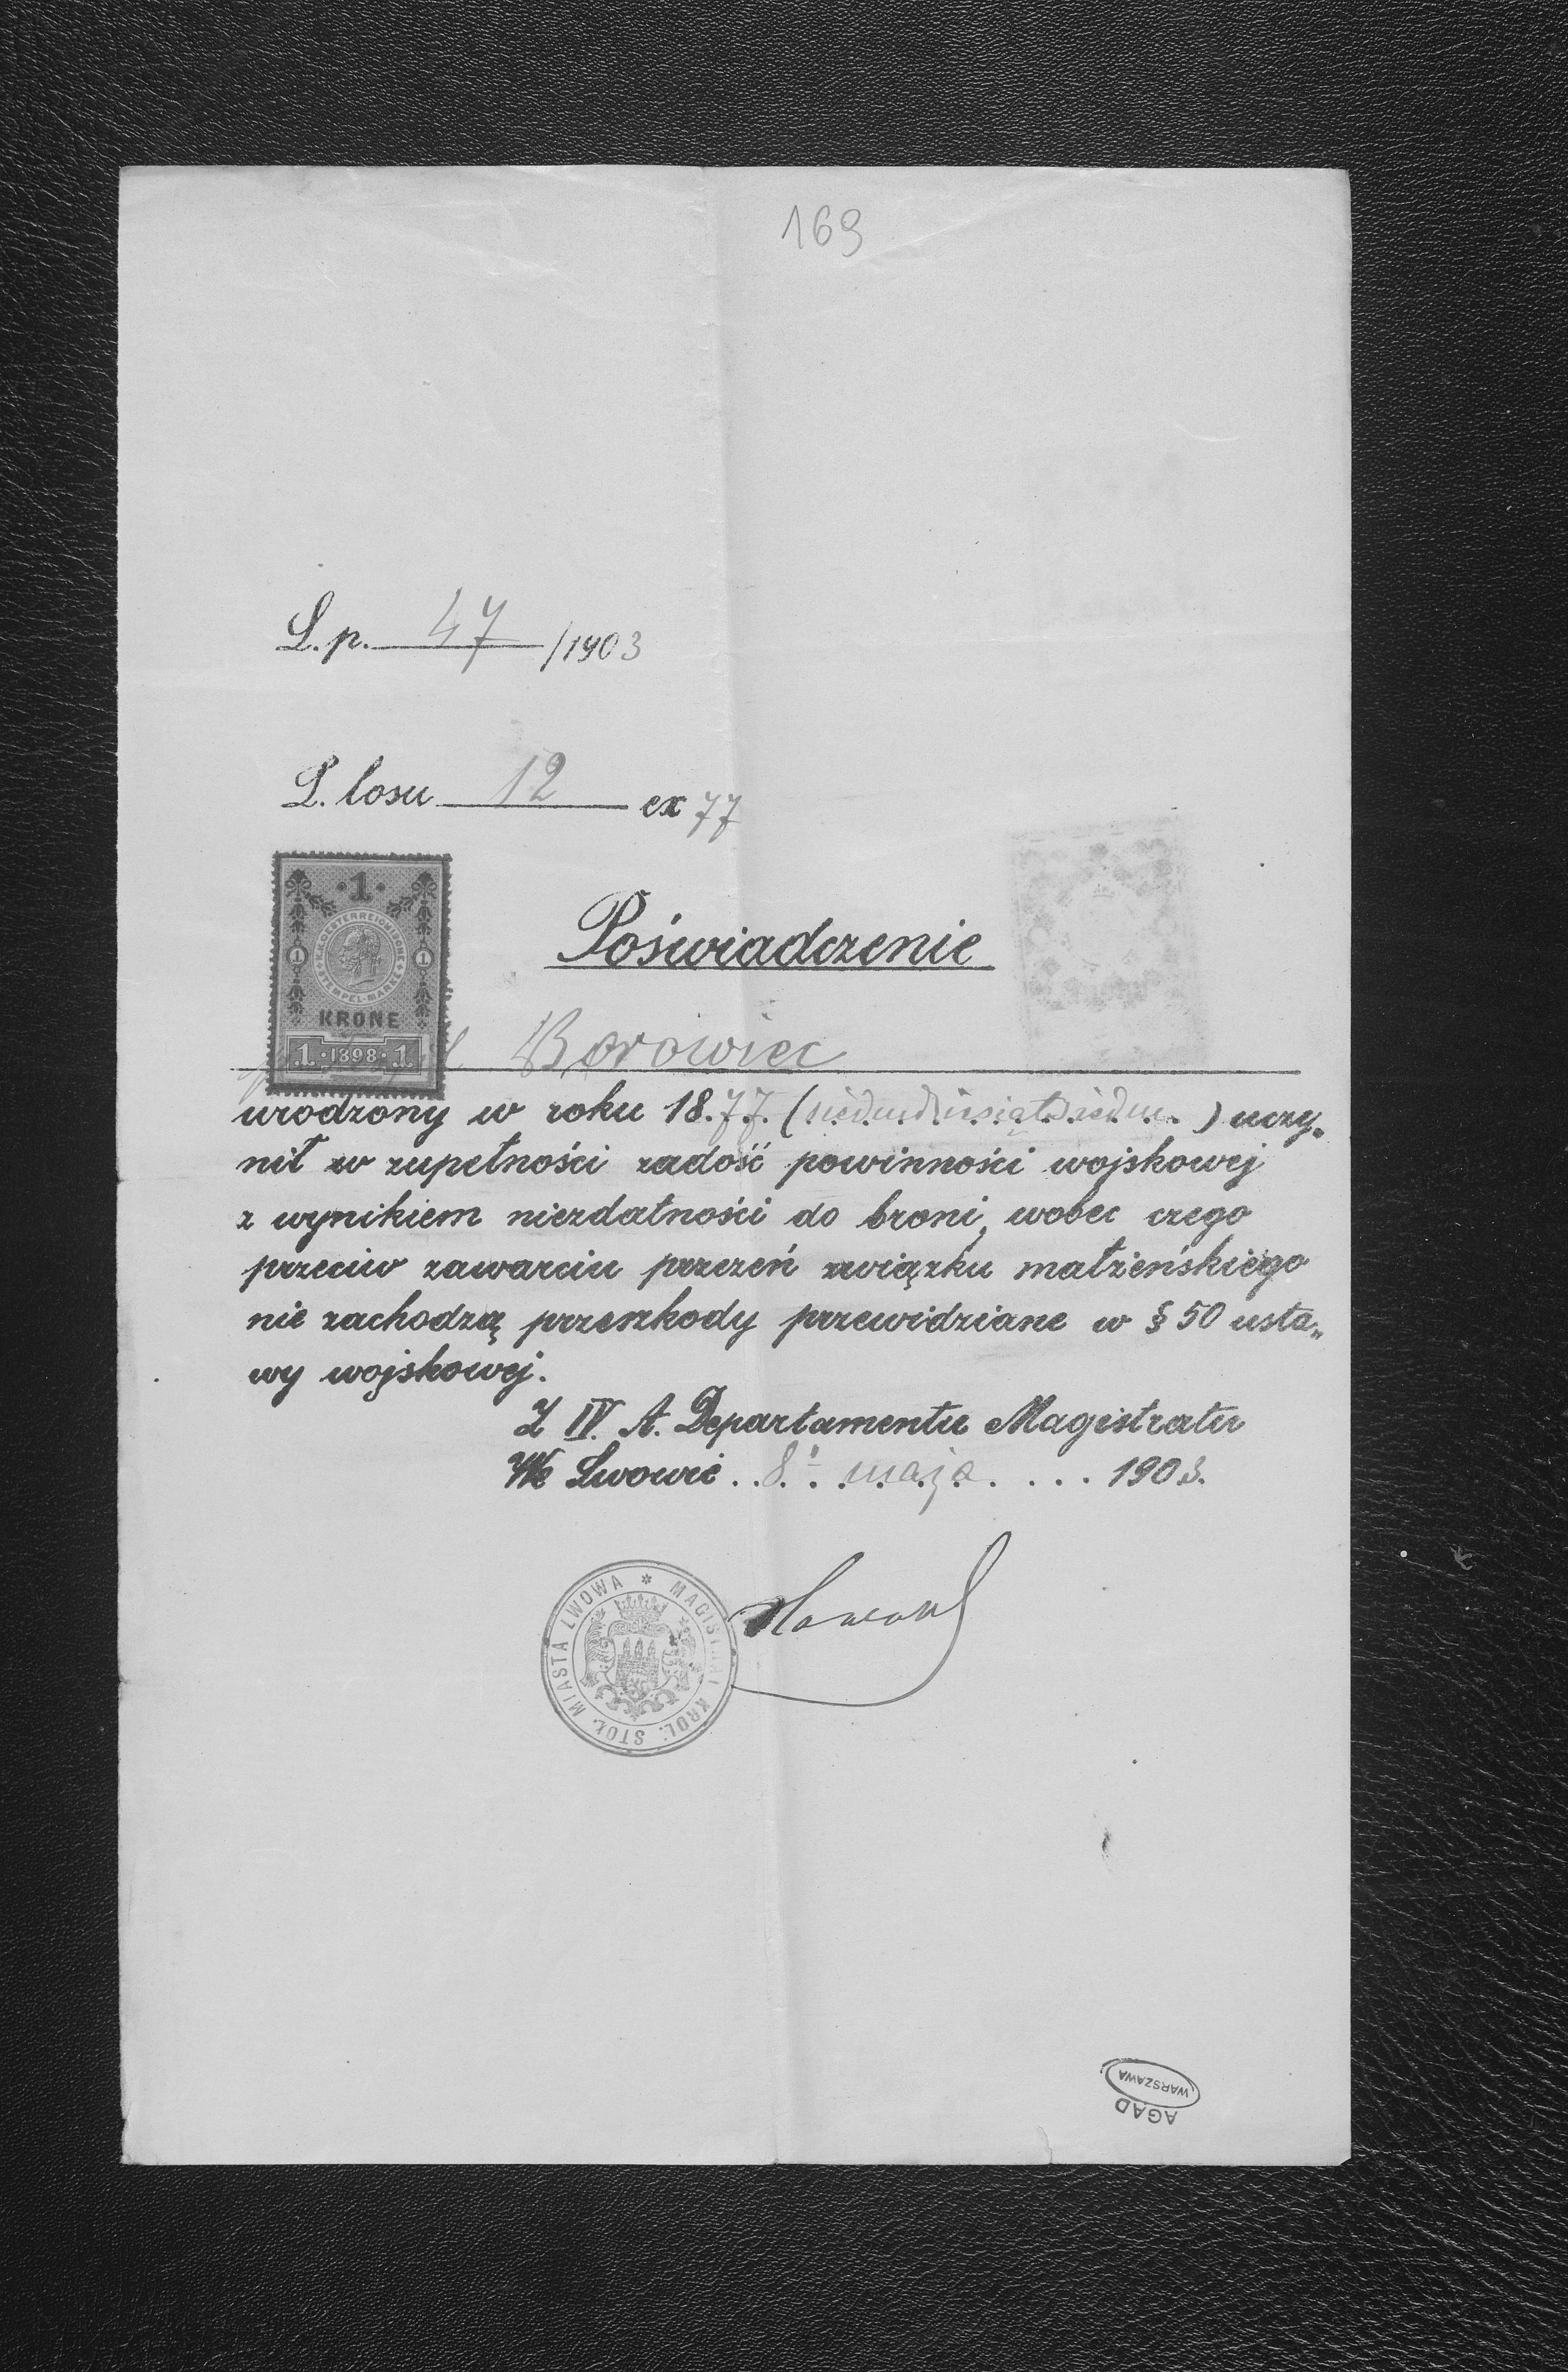 169
L.p. 47 /1903
L. losu 12 ex 77
·1·
K.K. OESTERREICHISCHE STEMPEL-MARKE
1 1
KRONE
1·1898·1
Poświadczenie
Borowiec
urodzony w roku 1877 (siedmdziesiątsiedm) uczy„
nił w zupełności zadość powinności wojskowej
z wynikiem niezdatności do broni, wobec czego
przeciw zawarciu przezeń związku małżeńskiego
nie zachodzą przeszkody przewidziane w § 50 usta„
wy wojskowej.
Z IV. A. Departamentu Magistratu
We Lwowie 8 maja 1903.
MAGISTRAT KROL. STOŁ. MIASTA LWOWA
AGAD
WARSZAWA